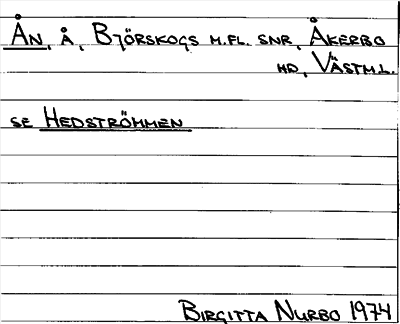 Ån, å, Björskogs m.fl. snr, Åkerbo
hd, Västml.
se Hedströmmen
Birgitta Nurbo 1974